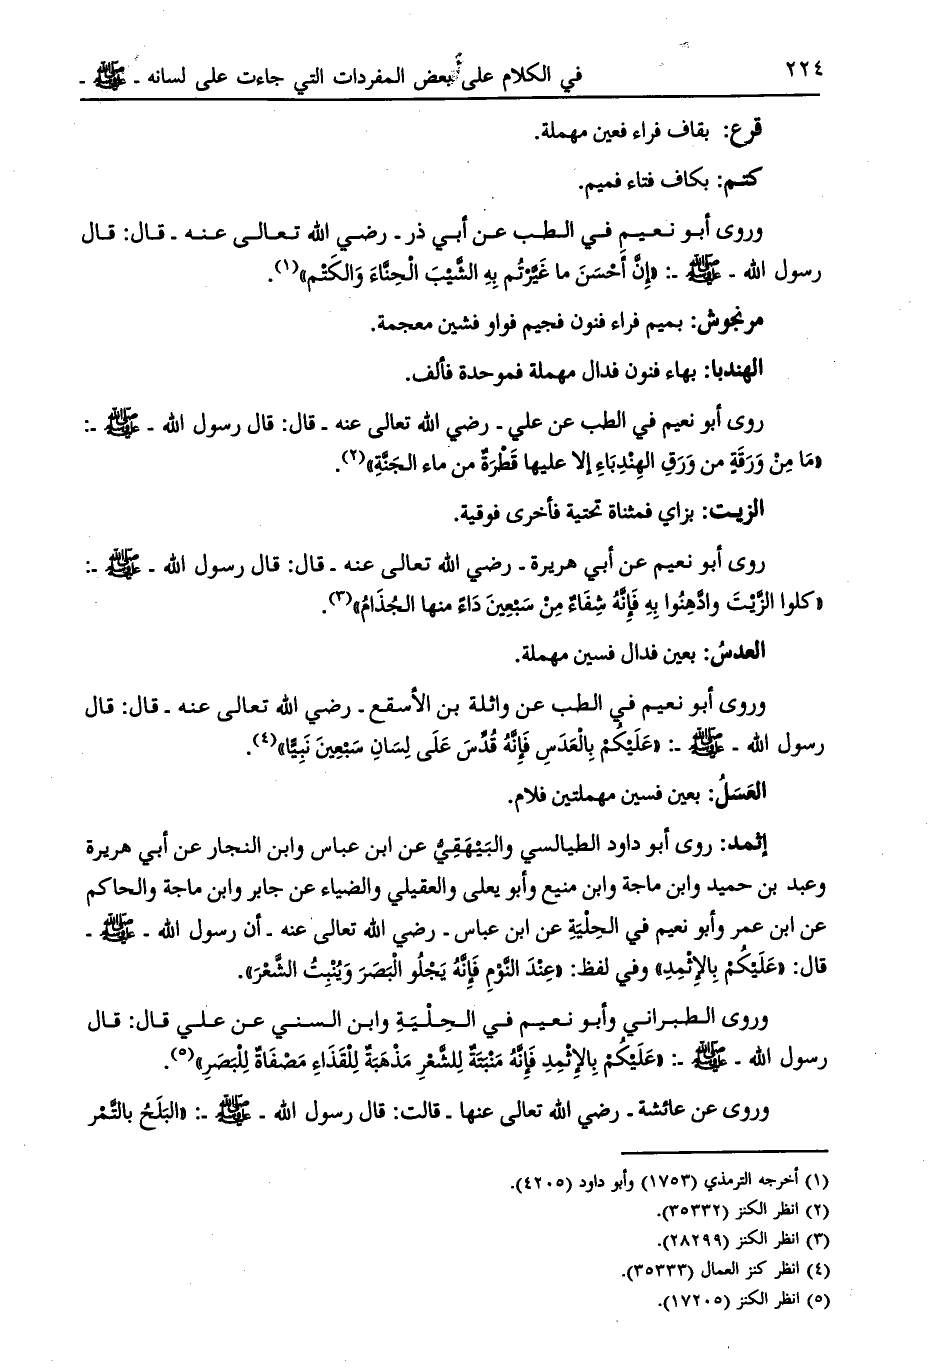 ٢٢٤ في الكلام على بعض المفردات التي جاءت على لسانه - ﷺ -
قرع: بقاف فراء فعين مهملة.
كتم: بكاف فتاء فميم.
وروى أبو نعيم في الطب عن أبي ذر - رضي الله تعالى عنه - قال: قال
رسول الله - ﷺ -: «إِنَّ أَحْسَنَ ما غَيَّرْتُم بِهِ الشَّيْبَ الْحِنَّاءَ وَالكَتْم»(١).
مرنجوش: بميم فراء فنون فجيم فواو فشين معجمة.
الهندبا: بهاء فنون فدال مهملة فموحدة فألف.
روى أبو نعيم في الطب عن علي - رضي الله تعالى عنه - قال: قال رسول الله - ﷺ -:
«مَا مِنْ وَرَقَةٍ من وَرَقِ الهِنْدِبَاءِ إلا عليها قَطْرَةٌ من ماء الجَنَّةِ»(٢).
الزيت: بزاي فمثناة تحتية فأخرى فوقية.
روى أبو نعيم عن أبي هريرة - رضي الله تعالى عنه - قال: قال رسول الله - ﷺ -:
«كلوا الزَّيْتَ وادَّهِنُوا بِهِ فَإِنَّهُ شِفَاءٌ مِنْ سَبْعِينَ دَاءً منها الجُذَامُ»(٣).
العدسُ: بعين فدال فسين مهملة.
وروى أبو نعيم في الطب عن واثلة بن الأسقع - رضي الله تعالى عنه - قال: قال
رسول الله - ﷺ -: «عَلَيْكُمْ بِالْعَدَسِ فَإِنَّهُ قُدِّسَ عَلَى لِسَانِ سَبْعِينَ نَبِيًّا»(٤).
العَسَلُ: بعين فسين مهملتين فلام.
إثمد: روى أبو داود الطيالسي والبَيْهَقِيُّ عن ابن عباس وابن النجار عن أبي هريرة
وعبد بن حميد وابن ماجة وابن منيع وأبو يعلى والعقيلي والضياء عن جابر وابن ماجة والحاكم
عن ابن عمر وأبو نعيم في الحِلْيَةِ عن ابن عباس - رضي الله تعالى عنه - أن رسول الله - ﷺ -
قال: «عَلَيْكُمْ بِالإِثْمِدِ» وفي لفظ: «عِنْدَ النَّوْمِ فَإِنَّهُ يَجْلُو الْبَصَرَ وَيُنْبِتُ الشَّعْرَ».
وروى الطبراني وأبو نعيم في الحِلْيَةِ وابن السني عن علي قال: قال
رسول الله - ﷺ -: «عَلَيْكُمْ بِالإِثْمِدِ فَإِنَّهُ مَنْبَتَةٌ لِلشَّعْرِ مَذْهَبَةٌ لِلْقَذَاءِ مَصْفَاةٌ لِلْبَصَرِ»(٥).
وروى عن عائشة - رضي الله تعالى عنها - قالت: قال رسول الله - ﷺ -: «البَلَحُ بالتَّمْر
(١) أخرجه الترمذي (١٧٥٣) وأبو داود (٤٢٠٥).
(٢) انظر الكنز (٣٥٣٣٢).
(٣) انظر الكنز (٢٨٢٩٩).
(٤) انظر كنز العمال (٣٥٣٣٣).
(٥) انظر الكنز (١٧٢٠٥).